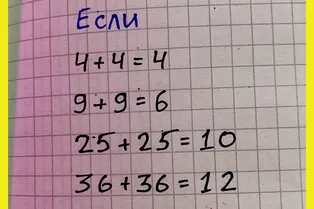 Если
4+4=4
9+9=6
25+25=10
36+36=12